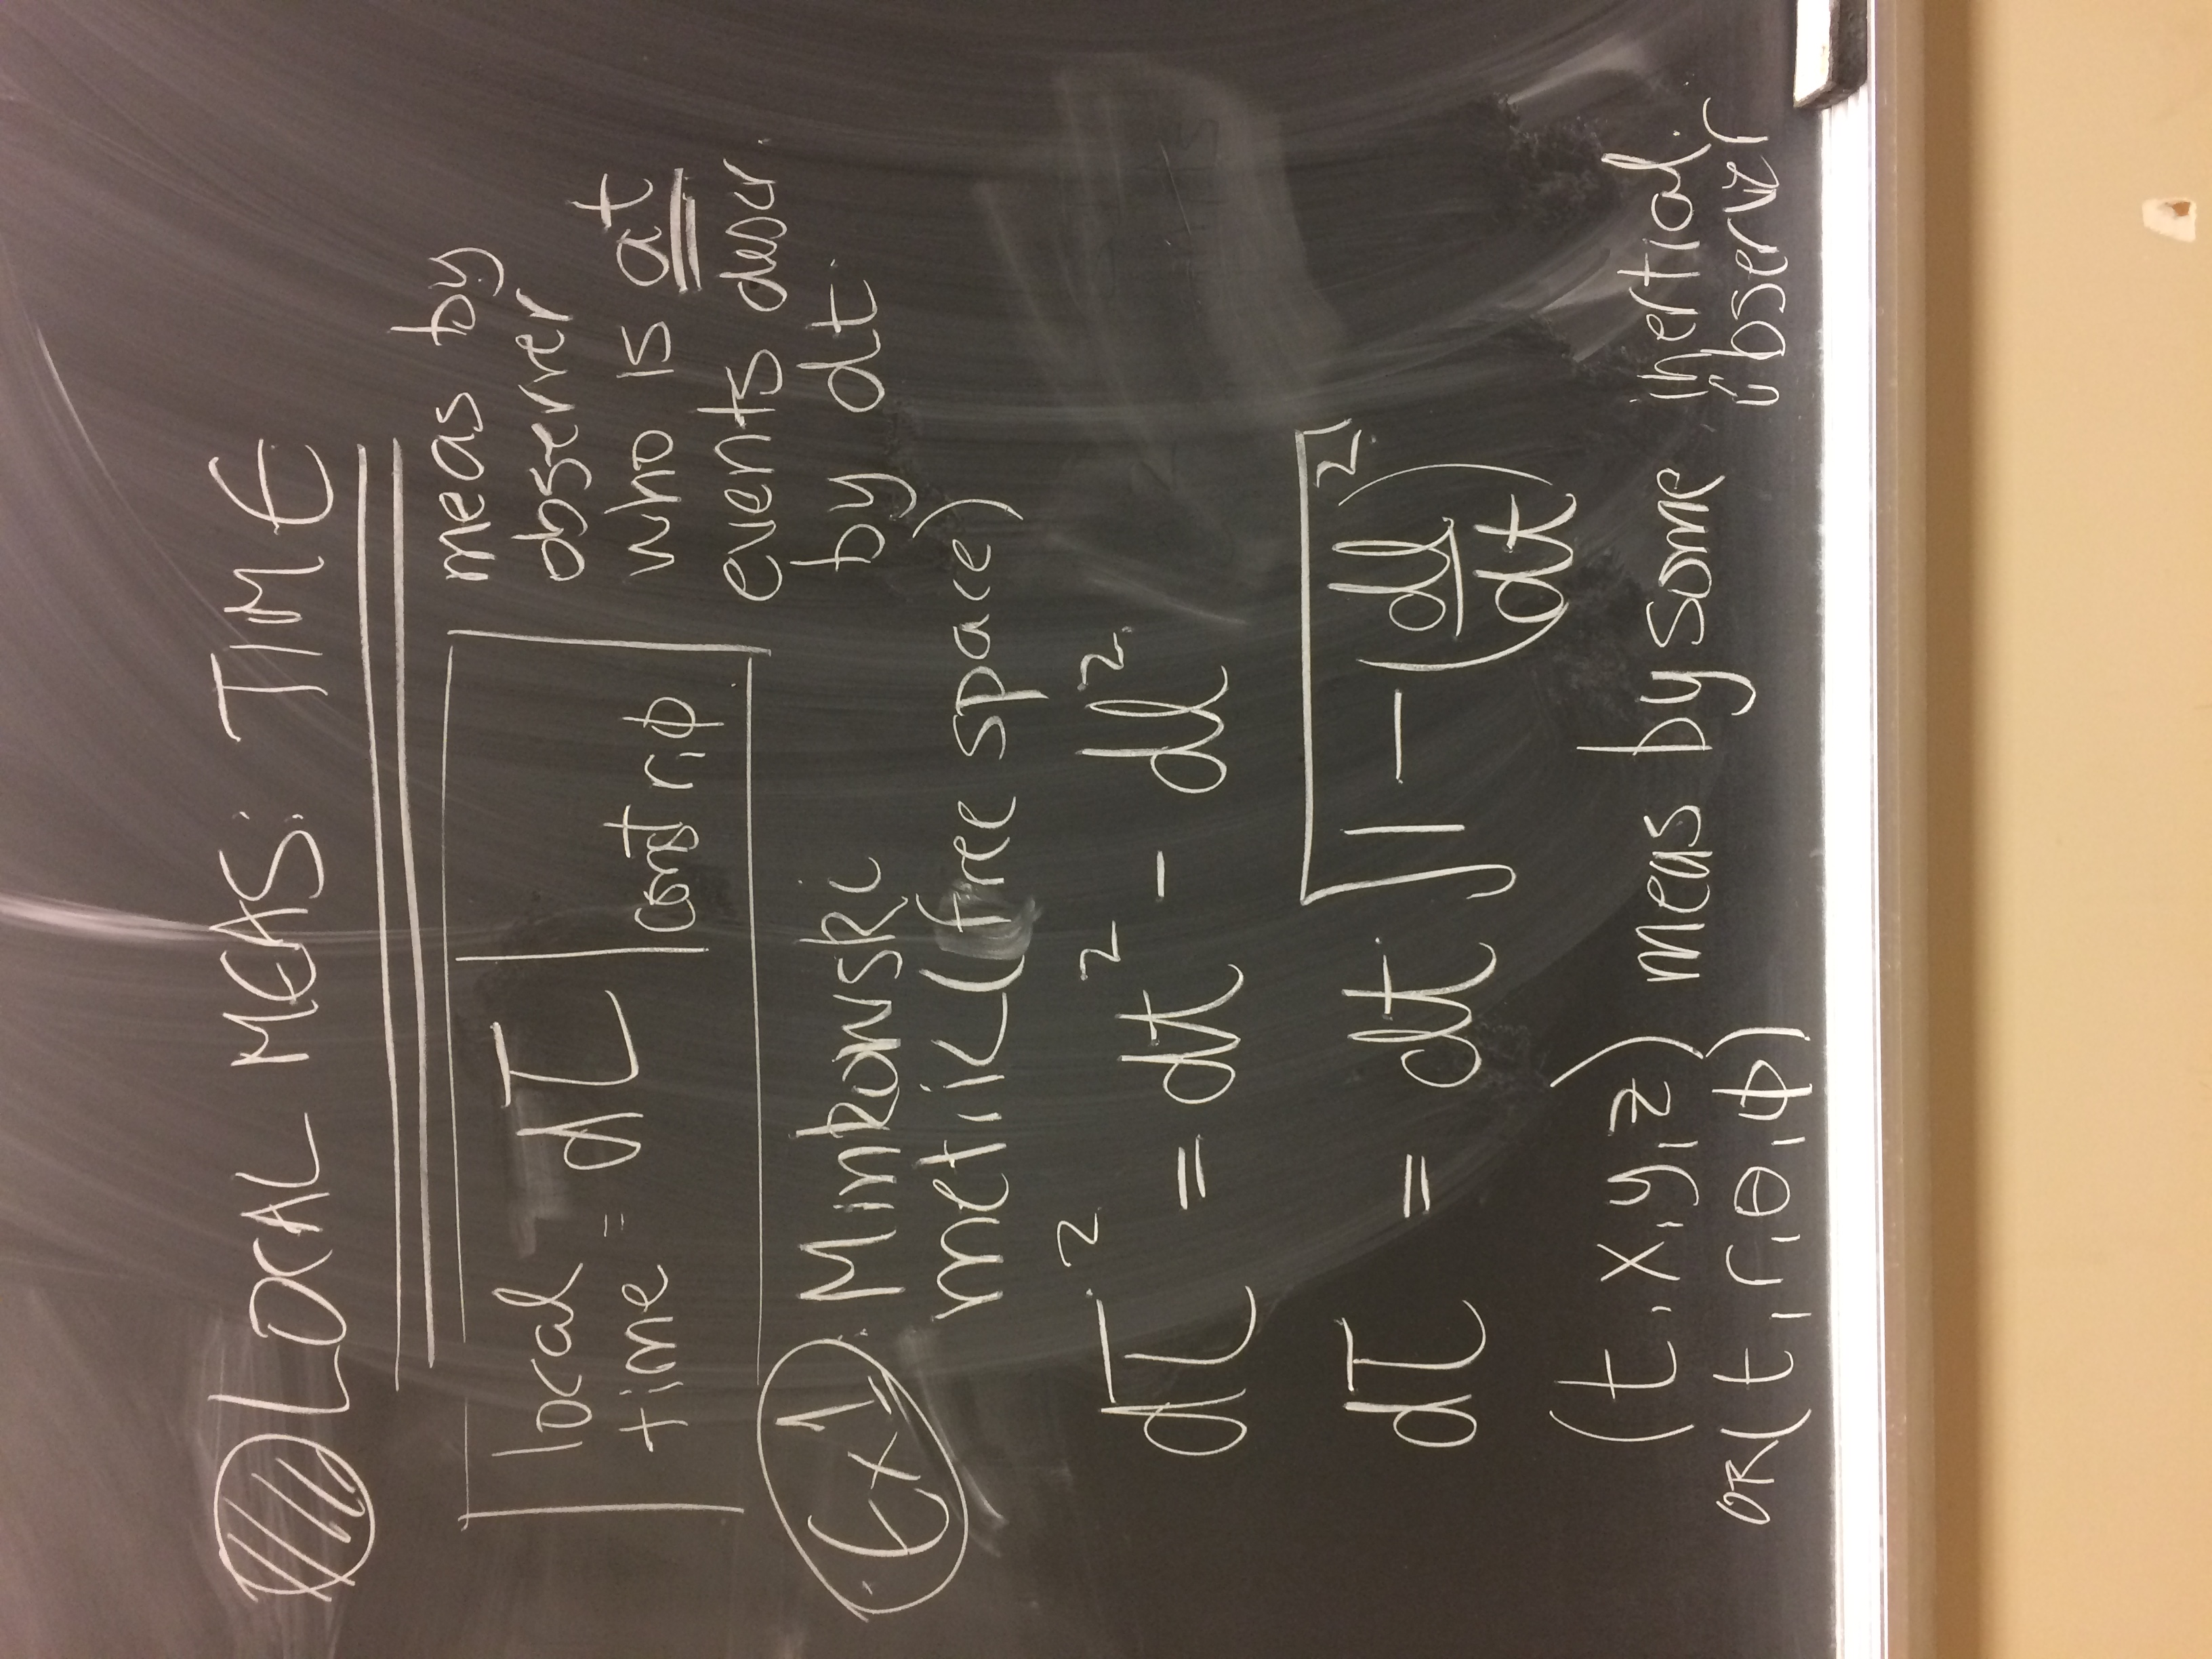 LOCAL MEAS: TIME
local time = dτ | const r, φ
meas by
observer
who is at
events descr.
by dt
Ex 1 Minkowski
metric (free space)
dτ² = dt² - dl²
dτ = dt √(1 - (dl/dt)²)
(t, x, y, z) meas by some inertial
OR (t, r, θ, φ) observer